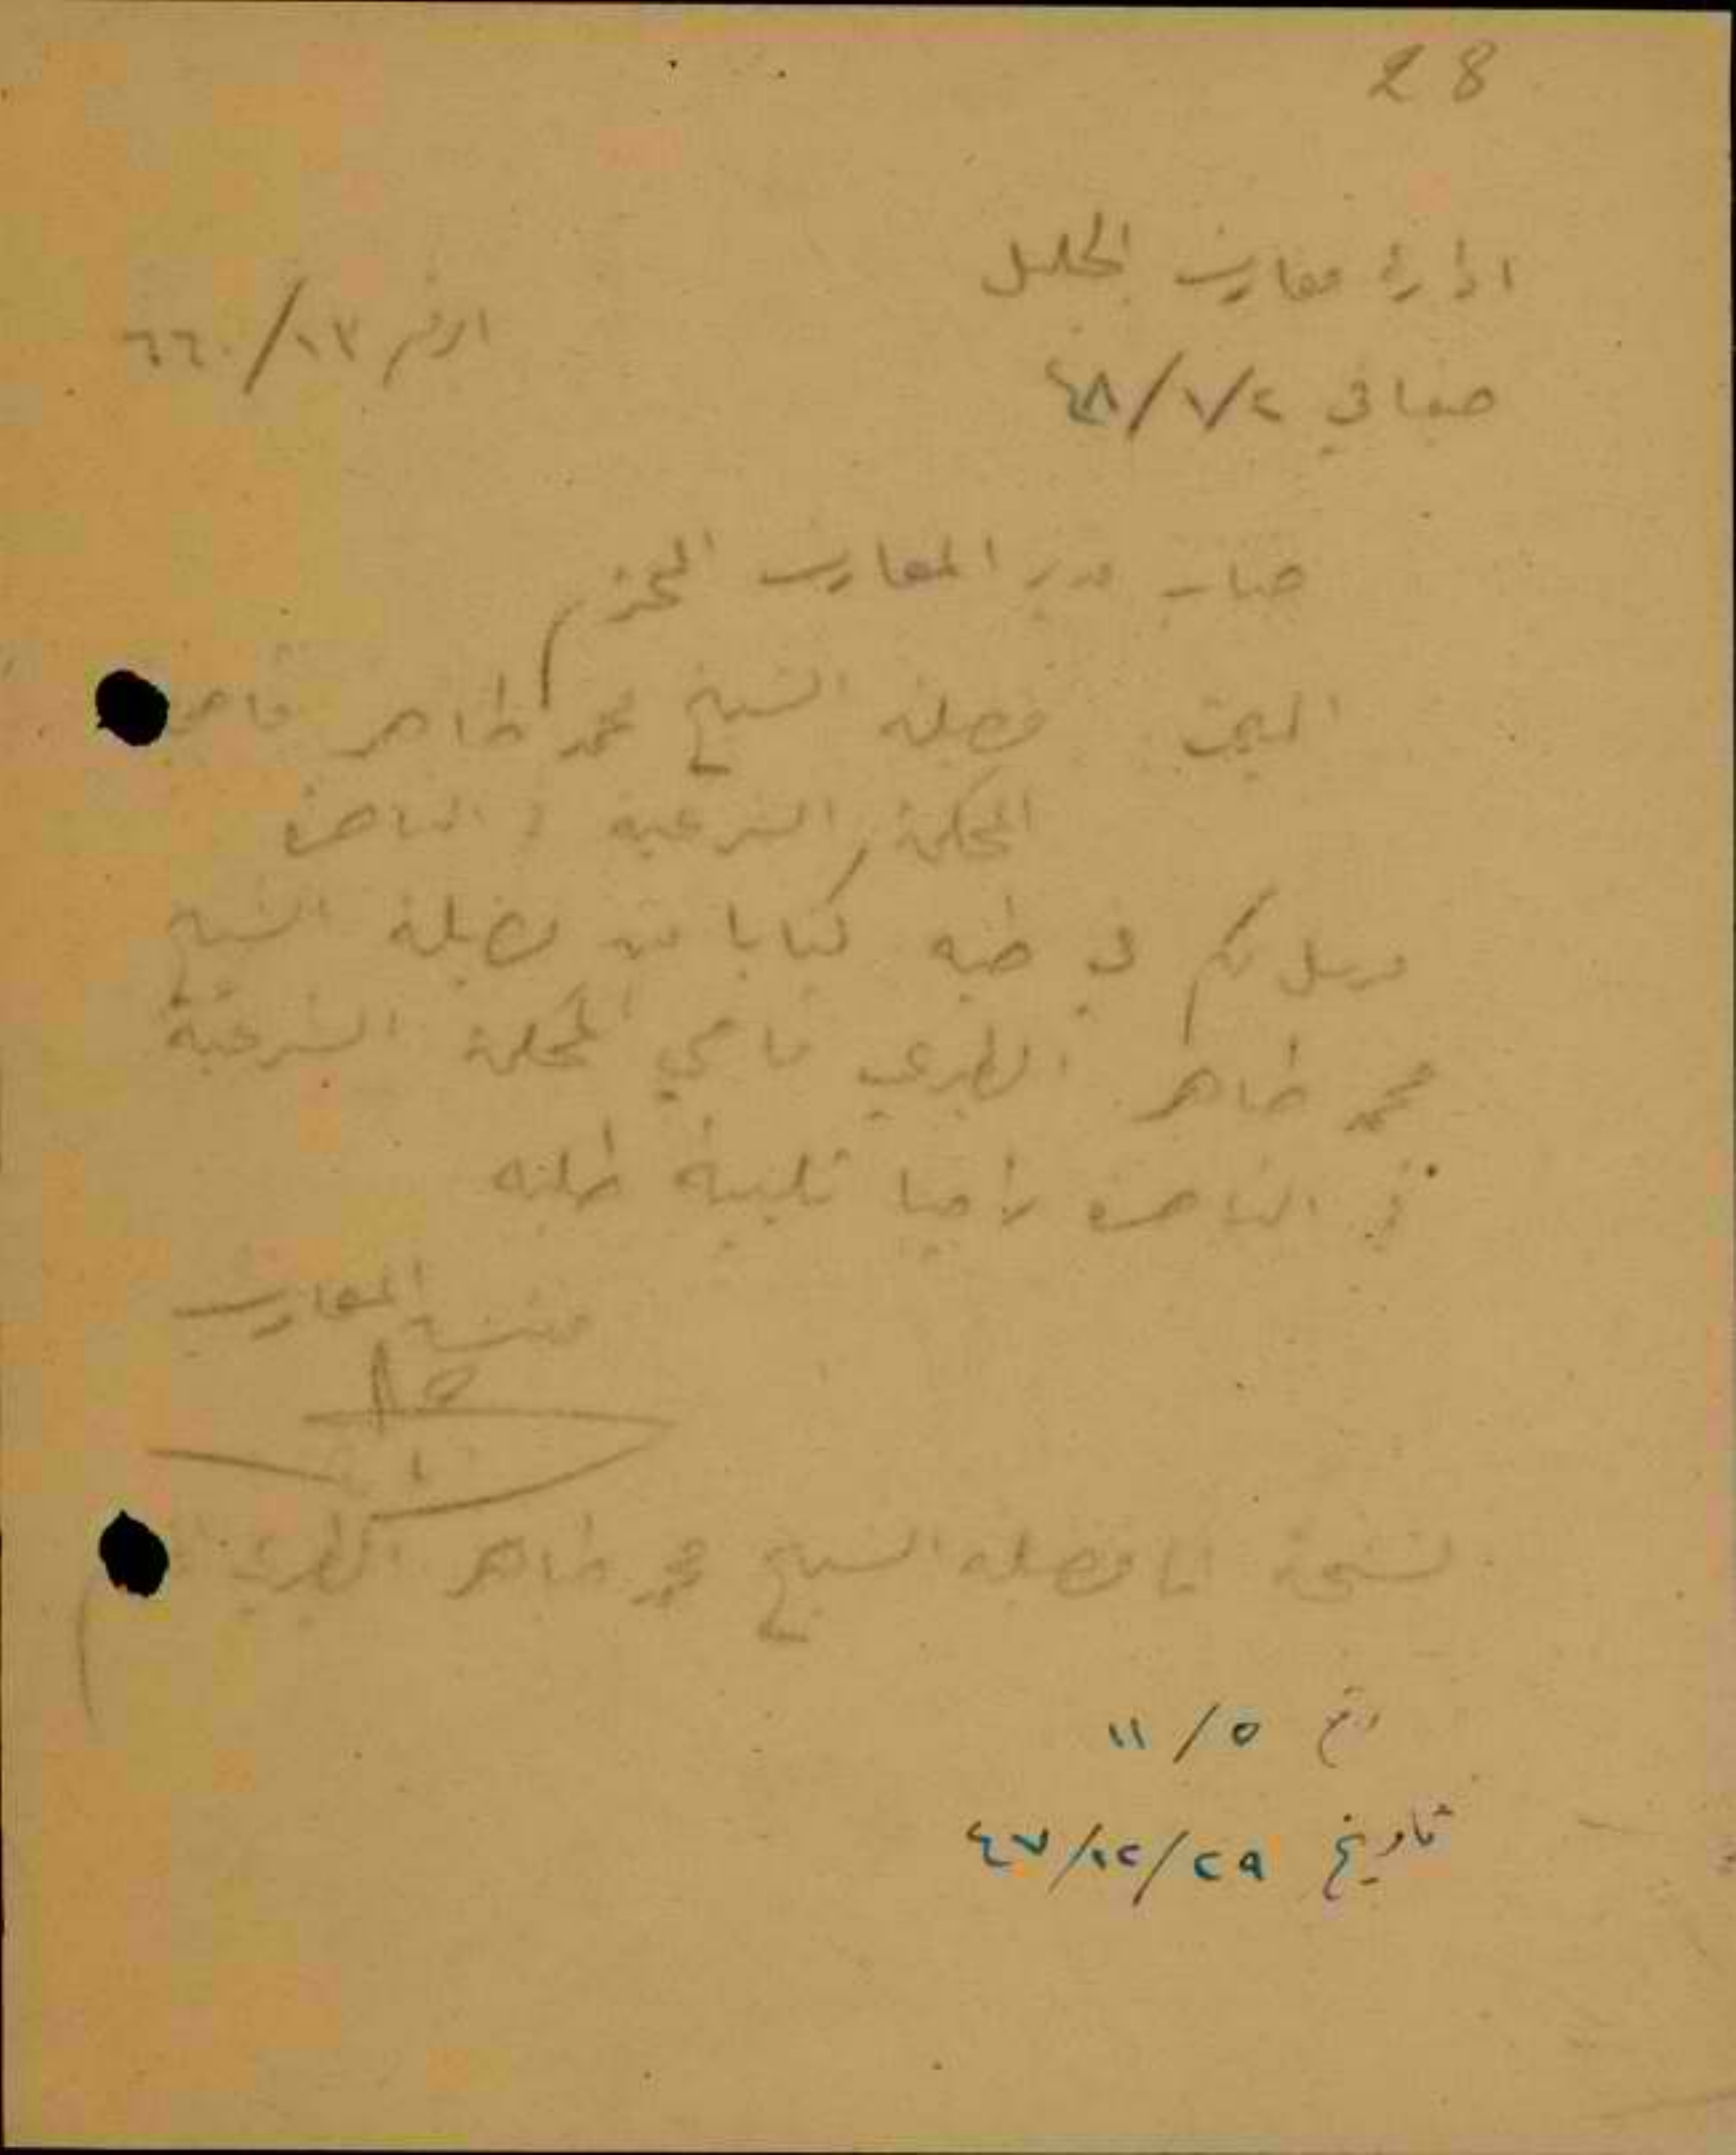 28
ادارة معارف الجليل
الرقم ١٣/٦٦٠
حيفا في ٤٨/١/٢
جناب مدير المعارف المحترم
المبحث فضيلة الشيخ محمد طاهر قاضي
المحكمة الشرعية في الناصرة
مرسل لكم في طيه كتابا من فضيلة الشيخ
محمد طاهر الطبري قاضي المحكمة الشرعية
في الناصرة راجيا تلبية طلبه
مفتش المعارف
نسخة الى فضيلة الشيخ محمد طاهر الطبري
رقم ١١/٥
تاريخ ٤٧/١٢/٢٩